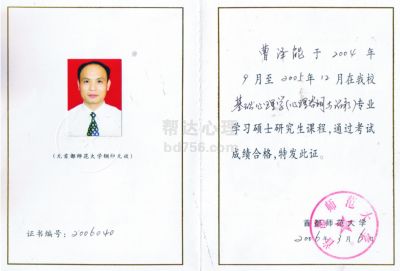 (无首都师范大学钢印无效)
证书编号：2006040
曹泽能于2004年
9月至2005年12月在我校
基础心理学(心理咨询与诊断)专业
学习硕士研究生课程，通过考试
成绩合格，特发此证。
首都师范大学
2006年3月6日
帮达心理
bd756.com